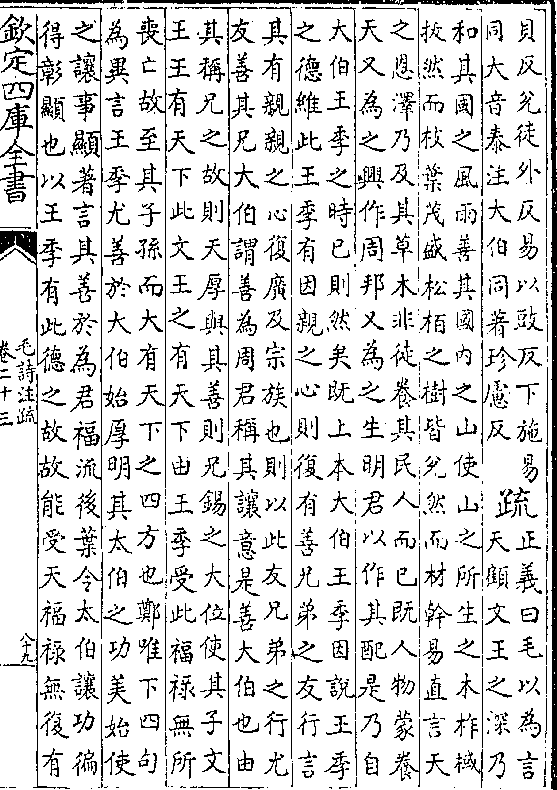 貝反兊徒外反易以豉反下施易
同大音泰注大伯同著珍慮反
疏
正義曰毛以為言
天顧文王之深乃
和其國之風雨善其國内之山使山之所生之木柞棫
拔然而枝葉茂盛松柏之樹皆兊然而材幹易直言天
之恩澤乃及其草木非徒養其民人而已既人物蒙養
天又為之興作周邦又為之生明君以作其配是乃自
大伯王季之時已則然矣既上本大伯王季因說王季
之德維此王季有因親之心則復有善兄弟之友行言
其有親親之心復廣及宗族也則以此友兄弟之行尤
友善其兄大伯謂善為周君稱其讓意是善大伯也由
其稱兄之故則天厚與其善則兄錫之大位使其子文
王王有天下此文王之有天下由王季受此福祿無所
喪亡故至其子孫而大有天下之四方也鄭唯下四句
為異言王季尤善於大伯始厚明其太伯之功美始使
之讓事顯著言其善於為君福流後葉令太伯讓功徧
得彰顯也以王季有此德之故故能受天福祿無復有
欽定四庫全書
毛詩注疏
卷二十三
八十九